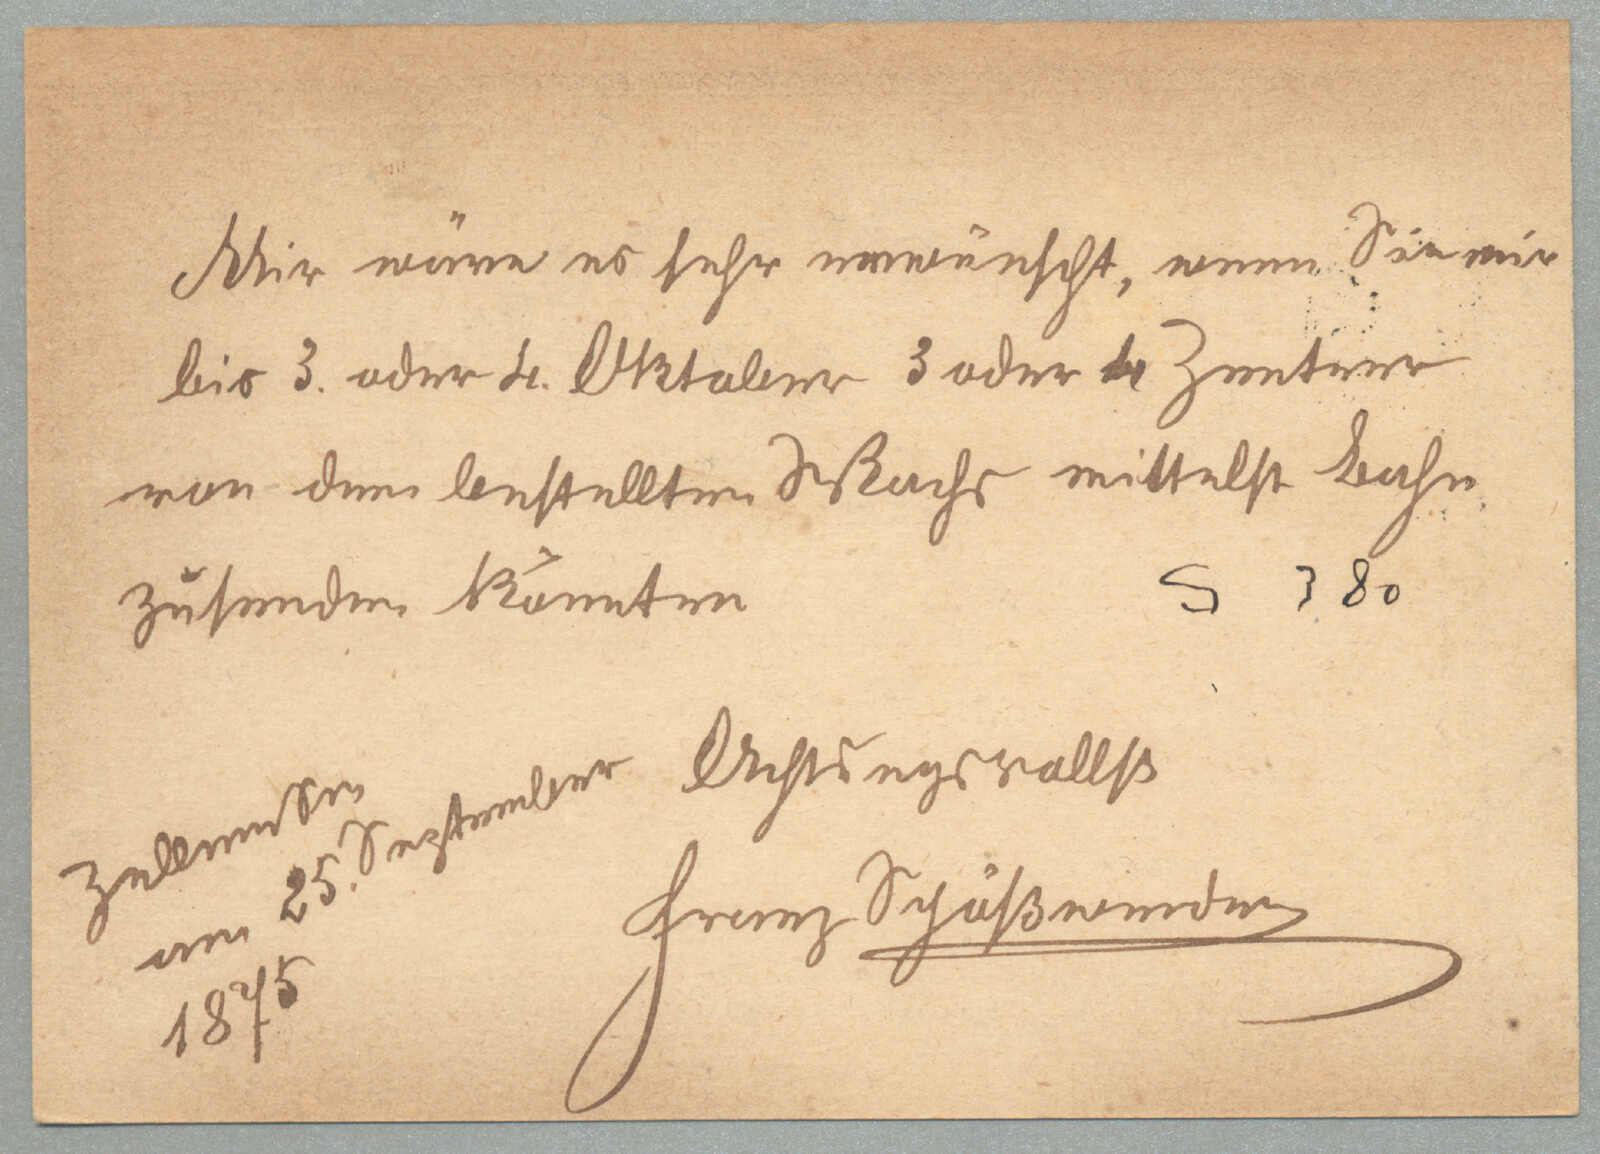 Mir wäre es sehr erwünscht, wenn Sie mir
bis 3. oder 4. Oktober 3 oder 4 Zentner
von dem bestellten Wachs mittelst Bahn
zusenden könnten
S 380
Achtungsvollst
am 25. September
1875
Franz